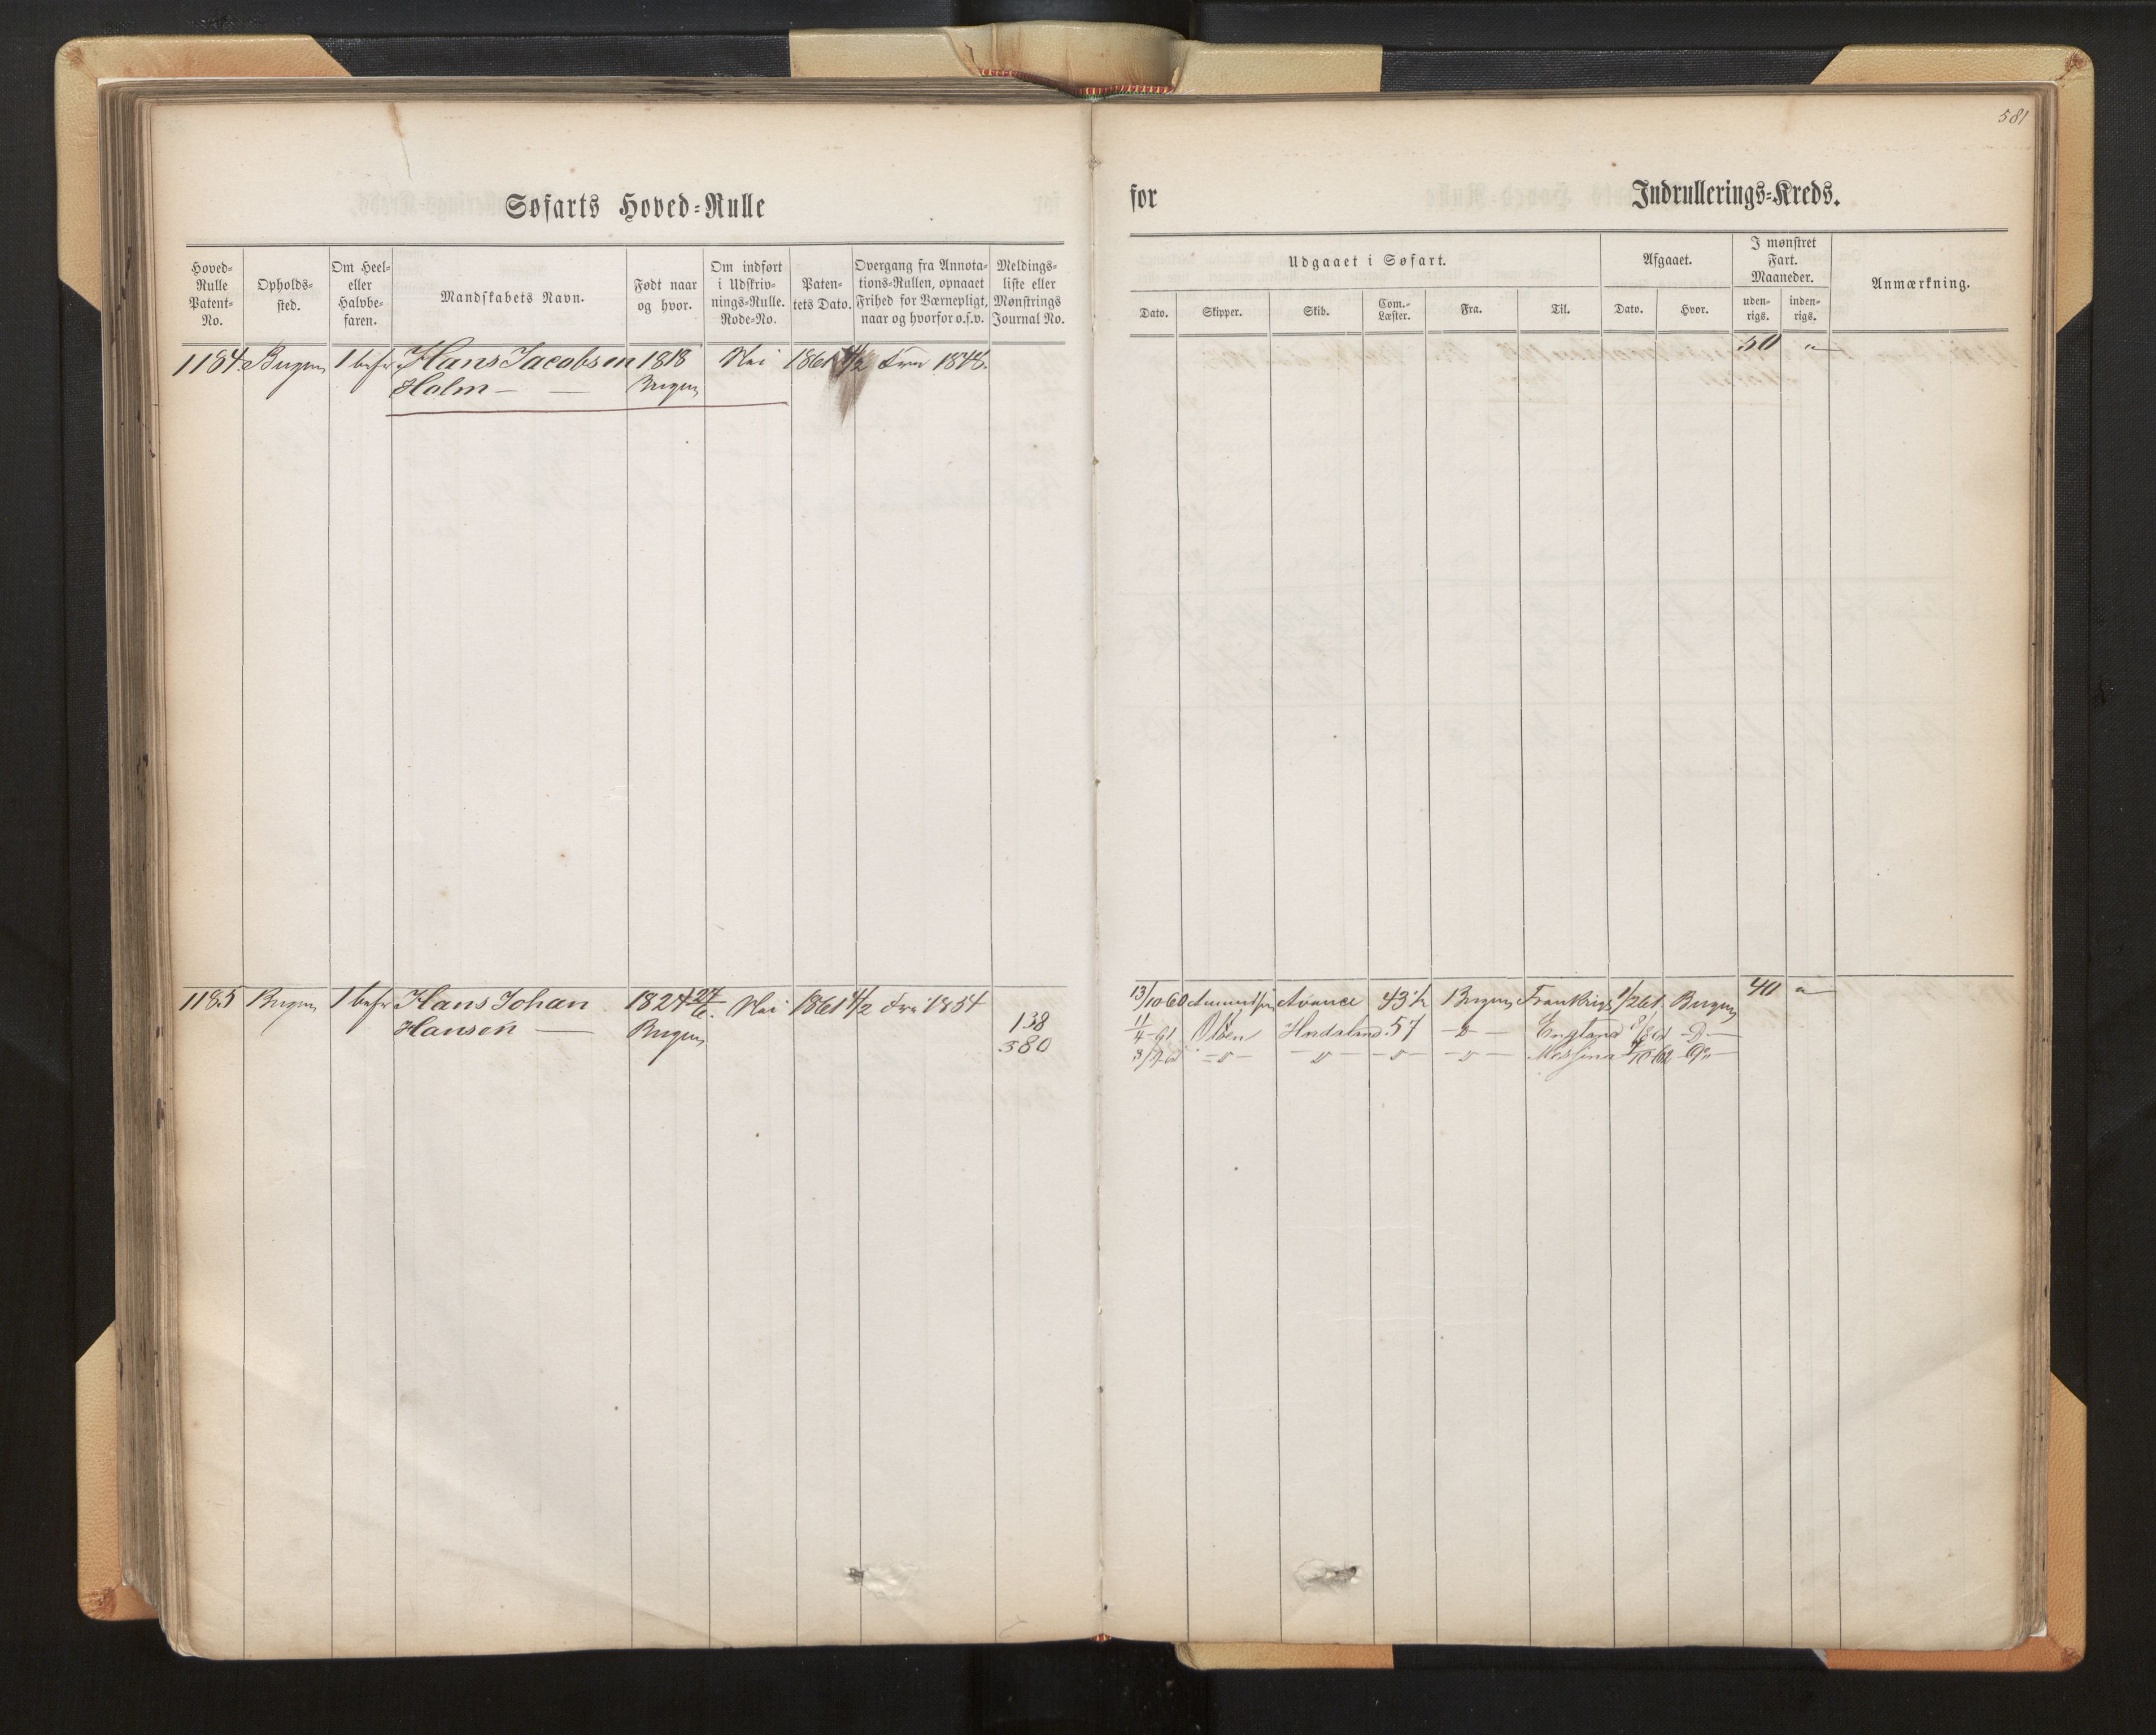 581
Søfarts Hoved-Rulle
for
Indrullerings-Kreds.
Hoved-Rulle Patent-No.
Opholds-sted.
Om Heel- eller Halvbe-faren.
Mandskabets Navn.
Født naar og hvor.
Om indført i Udskriv-nings-Rulle. Rode-No.
Paten-tets Dato.
Overgang fra Annota-tions-Rullen, opnaaet Frihed for Værnepligt, naar og hvorfor o.s.v.
Meldings-liste eller Mønstrings Journal No.
Udgaaet i Søfart.
Afgaaet.
I mønstret Fart. Maaneder.
Anmærkning.
Dato.
Skipper.
Skib.
Com.-Læster.
Fra.
Til.
Dato.
Hvor.
uden-rigs.
inden-rigs.
1184 Bergen 1 befr Hans Jacobsen 1818 Nei 1861 4/2 fra 1848. 50 "
Holm — — Bergen
1185 Bergen 1 befr Hans Johan 1824 24/6. Nei 1861 4/2 fra 1854 13/10-60 Amundsen Avance 43½ Bergen Frankrig 1/2 61 Bergen 40 "
Hansen — Bergen 138 11/4-61 Olsen Hordaland 57 — D — England 61 — D —
380 Messina 62 Do